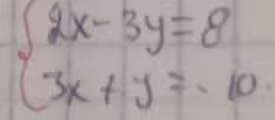 2x - 3y = 8
3x + y = . 10.